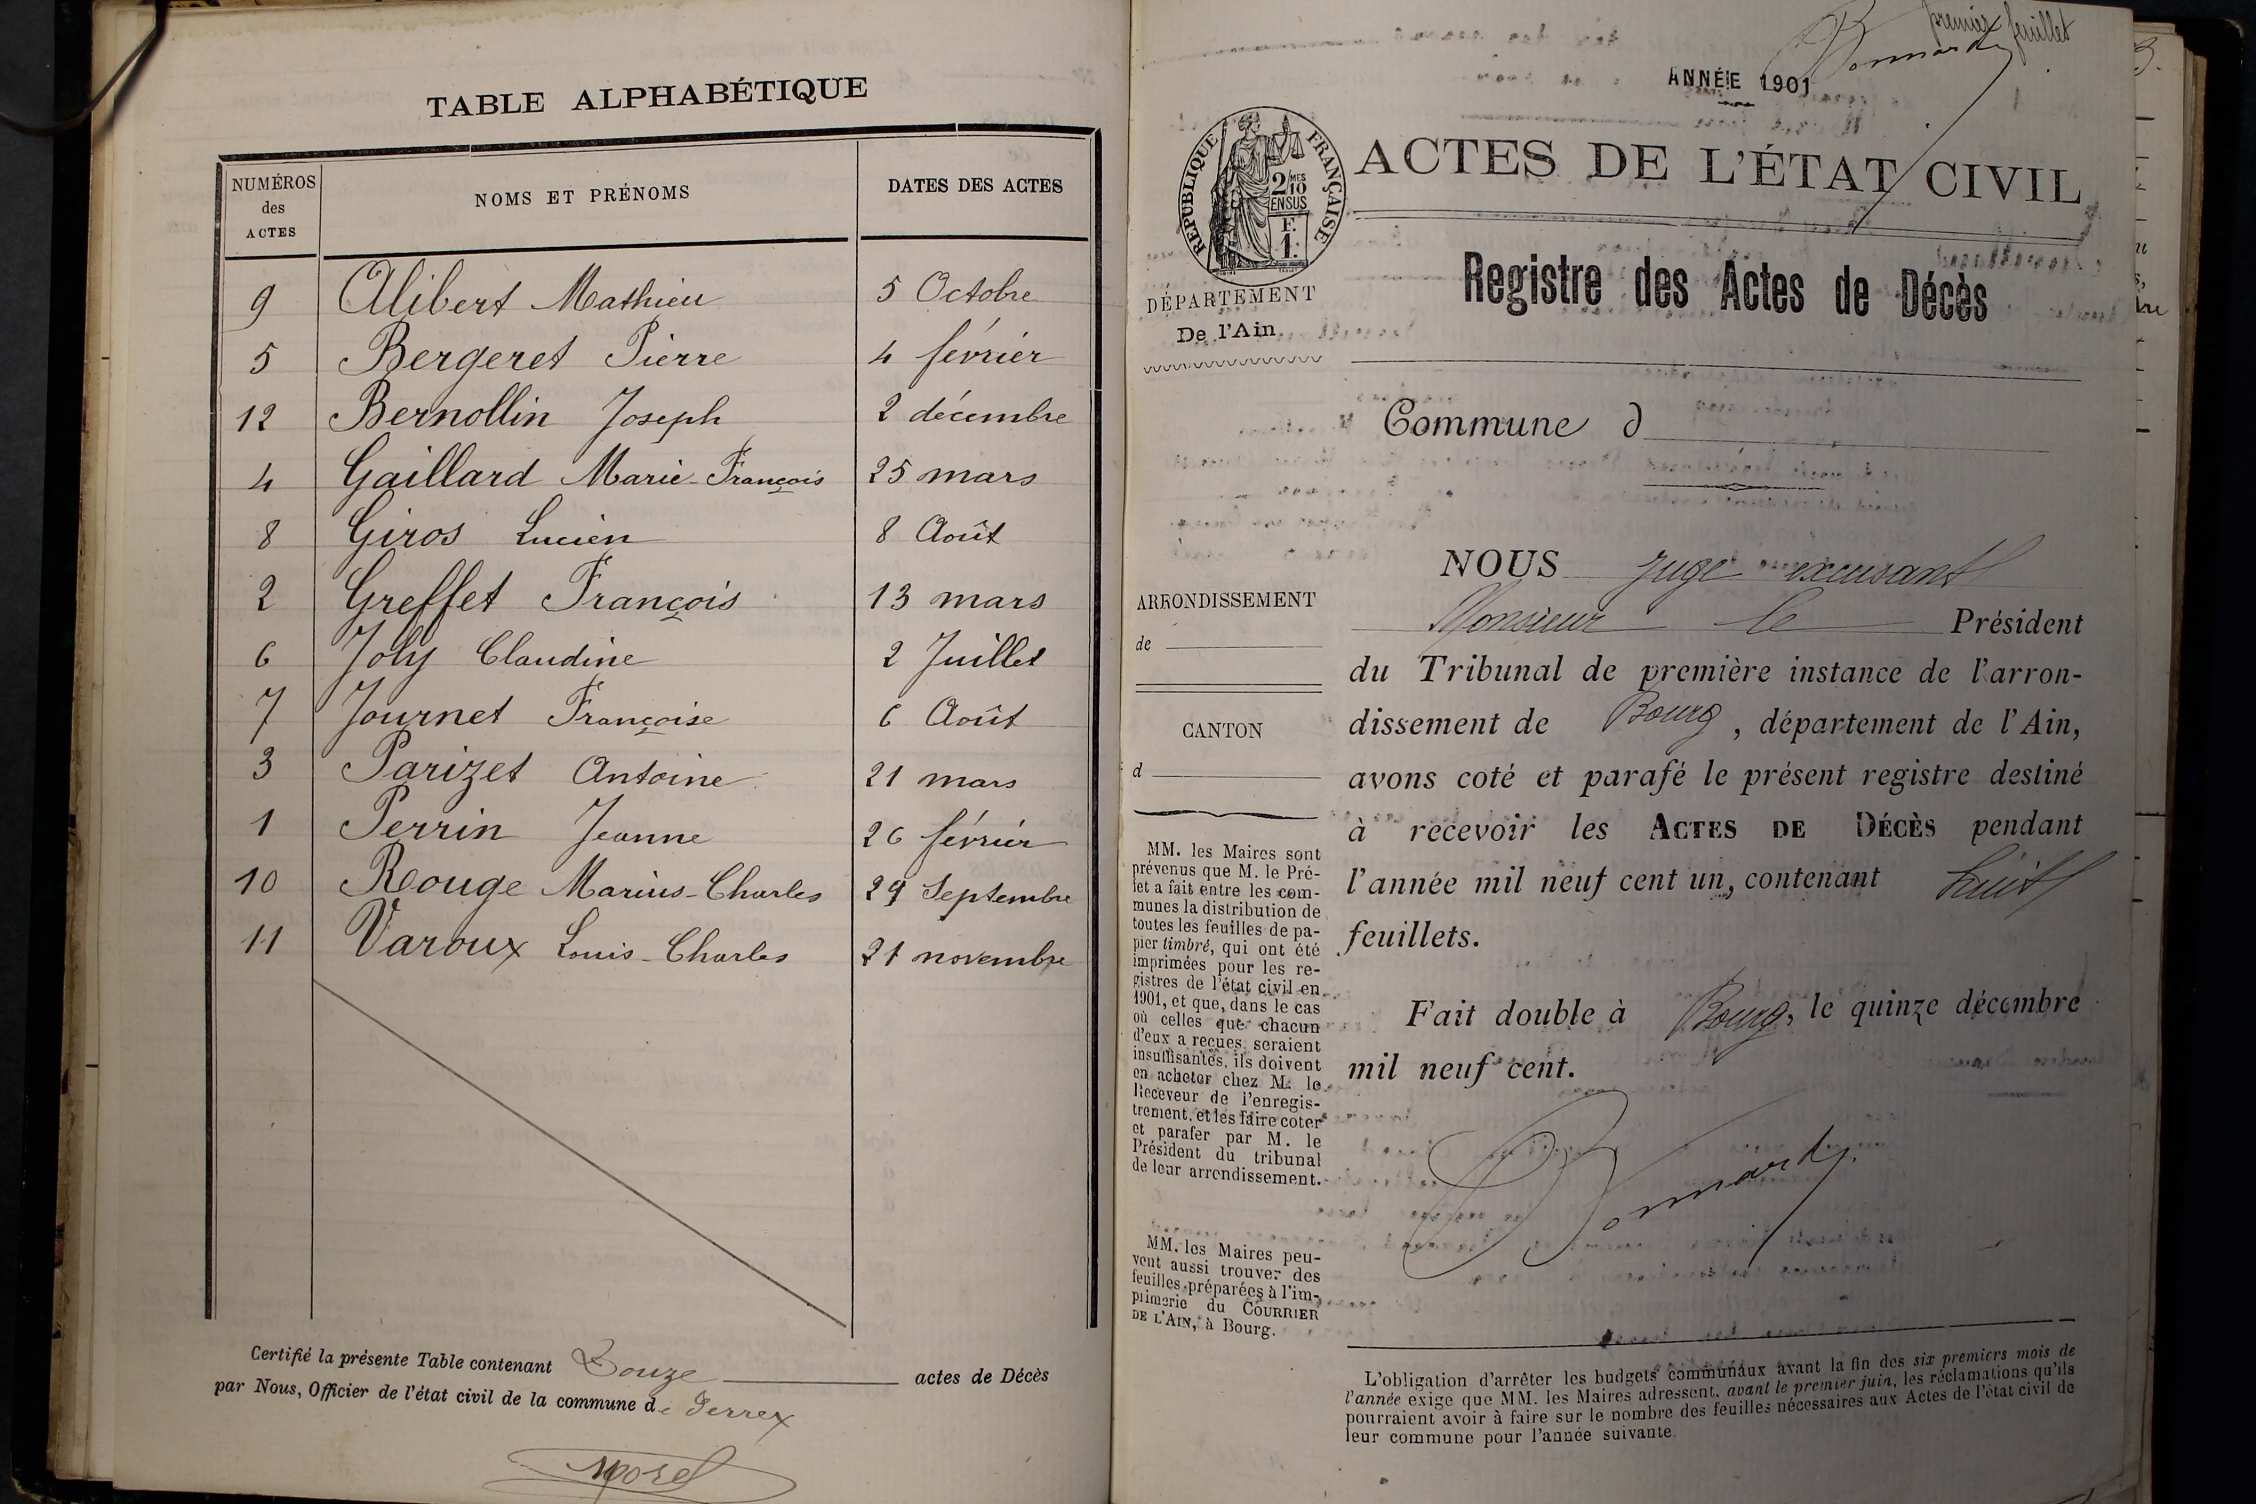 TABLE ALPHABÉTIQUE
NUMÉROS des ACTES
NOMS ET PRÉNOMS
DATES DES ACTES
9 Alibert Mathieu 5 Octobre
5 Bergeret Pierre 4 février
12 Bernollin Joseph 2 décembre
4 Gaillard Marie-François 25 mars
8 Giros Lucien 8 Août
2 Greffet François 13 mars
6 Joly Claudine 2 Juillet
7 Journet Françoise 6 Août
3 Parizet Antoine 21 mars
1 Perrin Jeanne 26 février
10 Rouge Marius-Charles 29 Septembre
11 Varoux Louis-Charles 21 novembre
Certifié la présente Table contenant Douze actes de Décès
par Nous, Officier de l'état civil de la commune de Perrex
Morel
premier feuillet
Bonnardy
ANNÉE 1901
RÉPUBLIQUE FRANÇAISE
2/10 MES
EN SUS
F.
1.
ACTES DE L'ÉTAT CIVIL
Registre des Actes de Décès
DÉPARTEMENT
De l'Ain
Commune d
ARRONDISSEMENT
de
CANTON
d
MM. les Maires sont
prévenus que M. le Pré-
fet a fait entre les com-
munes la distribution de
toutes les feuilles de pa-
pier timbré, qui ont été
imprimées pour les re-
gistres de l'état civil en
1901, et que, dans le cas
où celles que chacun
d'eux a reçues seraient
insuffisantes, ils doivent
en acheter chez M. le
Receveur de l'enregis-
trement, et les faire coter
et parafer par M. le
Président du tribunal
de leur arrondissement.
MM. les Maires peu-
vent aussi trouver des
feuilles préparées à l'im-
primerie du COURRIER
DE L'AIN, à Bourg.
NOUS Juge excusant
Monsieur le Président
du Tribunal de première instance de l'arron-
dissement de Bourg, département de l'Ain,
avons coté et parafé le présent registre destiné
à recevoir les ACTES DE DÉCÈS pendant
l'année mil neuf cent un, contenant huit
feuillets.
Fait double à Bourg, le quinze décembre
mil neuf cent.
Bonnardy
L'obligation d'arrêter les budgets communaux avant la fin des six premiers mois de
l'année exige que MM. les Maires adressent, avant le premier juin, les réclamations qu'ils
pourraient avoir à faire sur le nombre des feuilles nécessaires aux Actes de l'état civil de
leur commune pour l'année suivante.